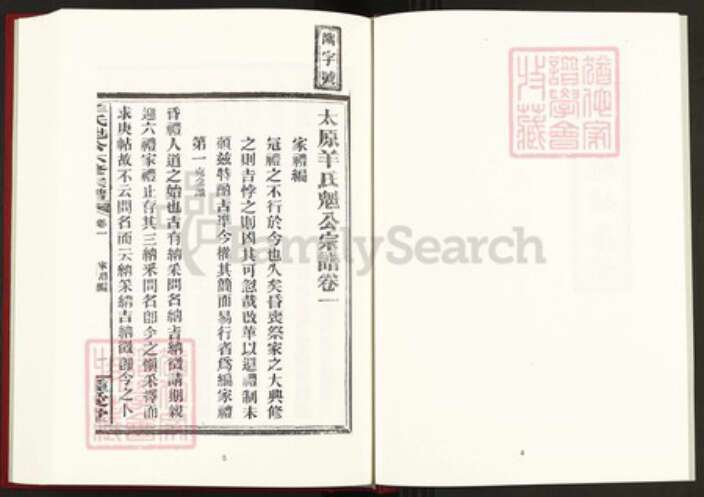 字號
太原羊氏魁公宗譜卷一
家禮編
冠禮之不行於今也久矣昏喪祭家之大典修
之則吉悖之則凶其可忽哉改革以還禮制未
頒茲特酌古準今構其簡而易行者為編家禮
第一
昏禮人道之始也古有納采問名納吉納徵請期親
迎六禮家禮止存其三納采問名即今之懶采擇而
求庚帖故不云問名而云納采納吉納徵即今之卜
卷一
家禮編
5
6
FamilySearch
猶他家譜學會收藏
猶他家譜學會收藏